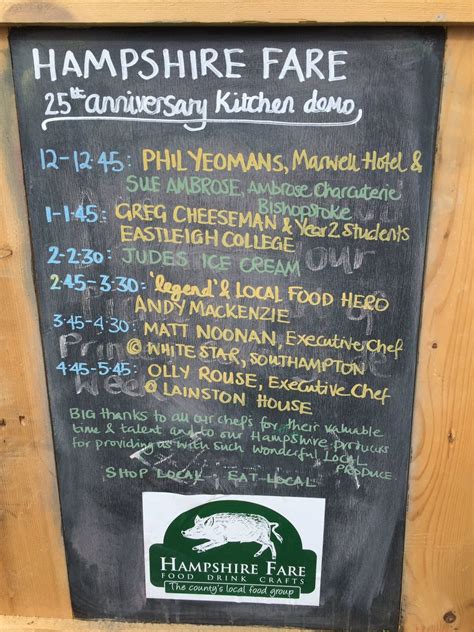 HAMPSHIRE FARE
25th anniversary Kitchen demo
12-12.45: PHIL YEOMANS, Marwell Hotel &
SUE AMBROSE, Ambrose Charcuterie
Bishopstoke
1-1.45: GREG CHEESEMAN & Year 2 Students
EASTLEIGH COLLEGE
2-2.30: JUDES ICE CREAM
2.45-3.30: 'legend' & LOCAL FOOD HERO
ANDY MACKENZIE
3.45-4.30: MATT NOONAN, Executive Chef
@ WHITE STAR, SOUTHAMPTON
4.45-5.45: OLLY ROUSE, Executive Chef
@ LAINSTON HOUSE
BIG thanks to all our chefs for their valuable
time & talent and to our Hampshire producers
for providing us with such wonderful LOCAL
PRODUCE
SHOP LOCAL EAT LOCAL
HAMPSHIRE FARE
FOOD DRINK CRAFTS
The county's local food group